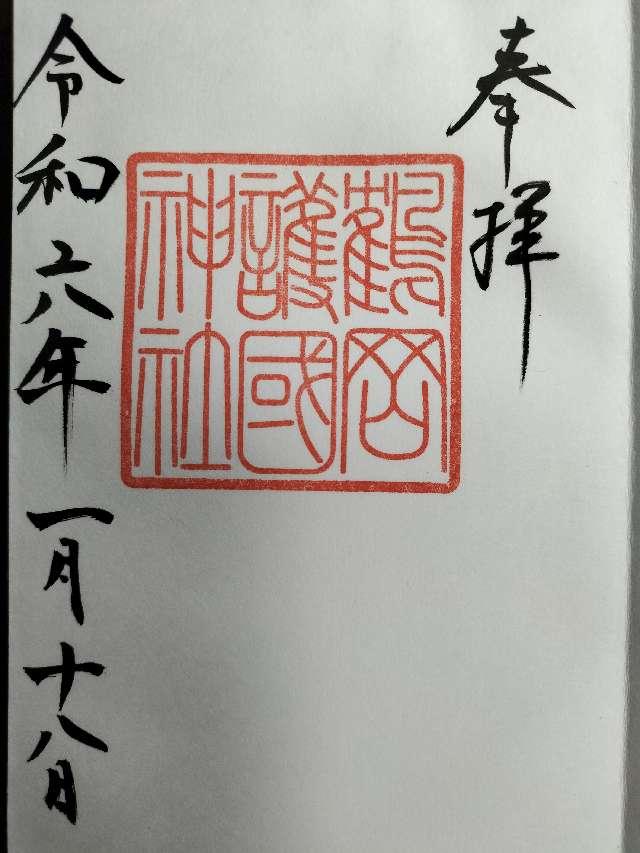 奉拝
鶴岡
護國
神社
令和六年一月十八日